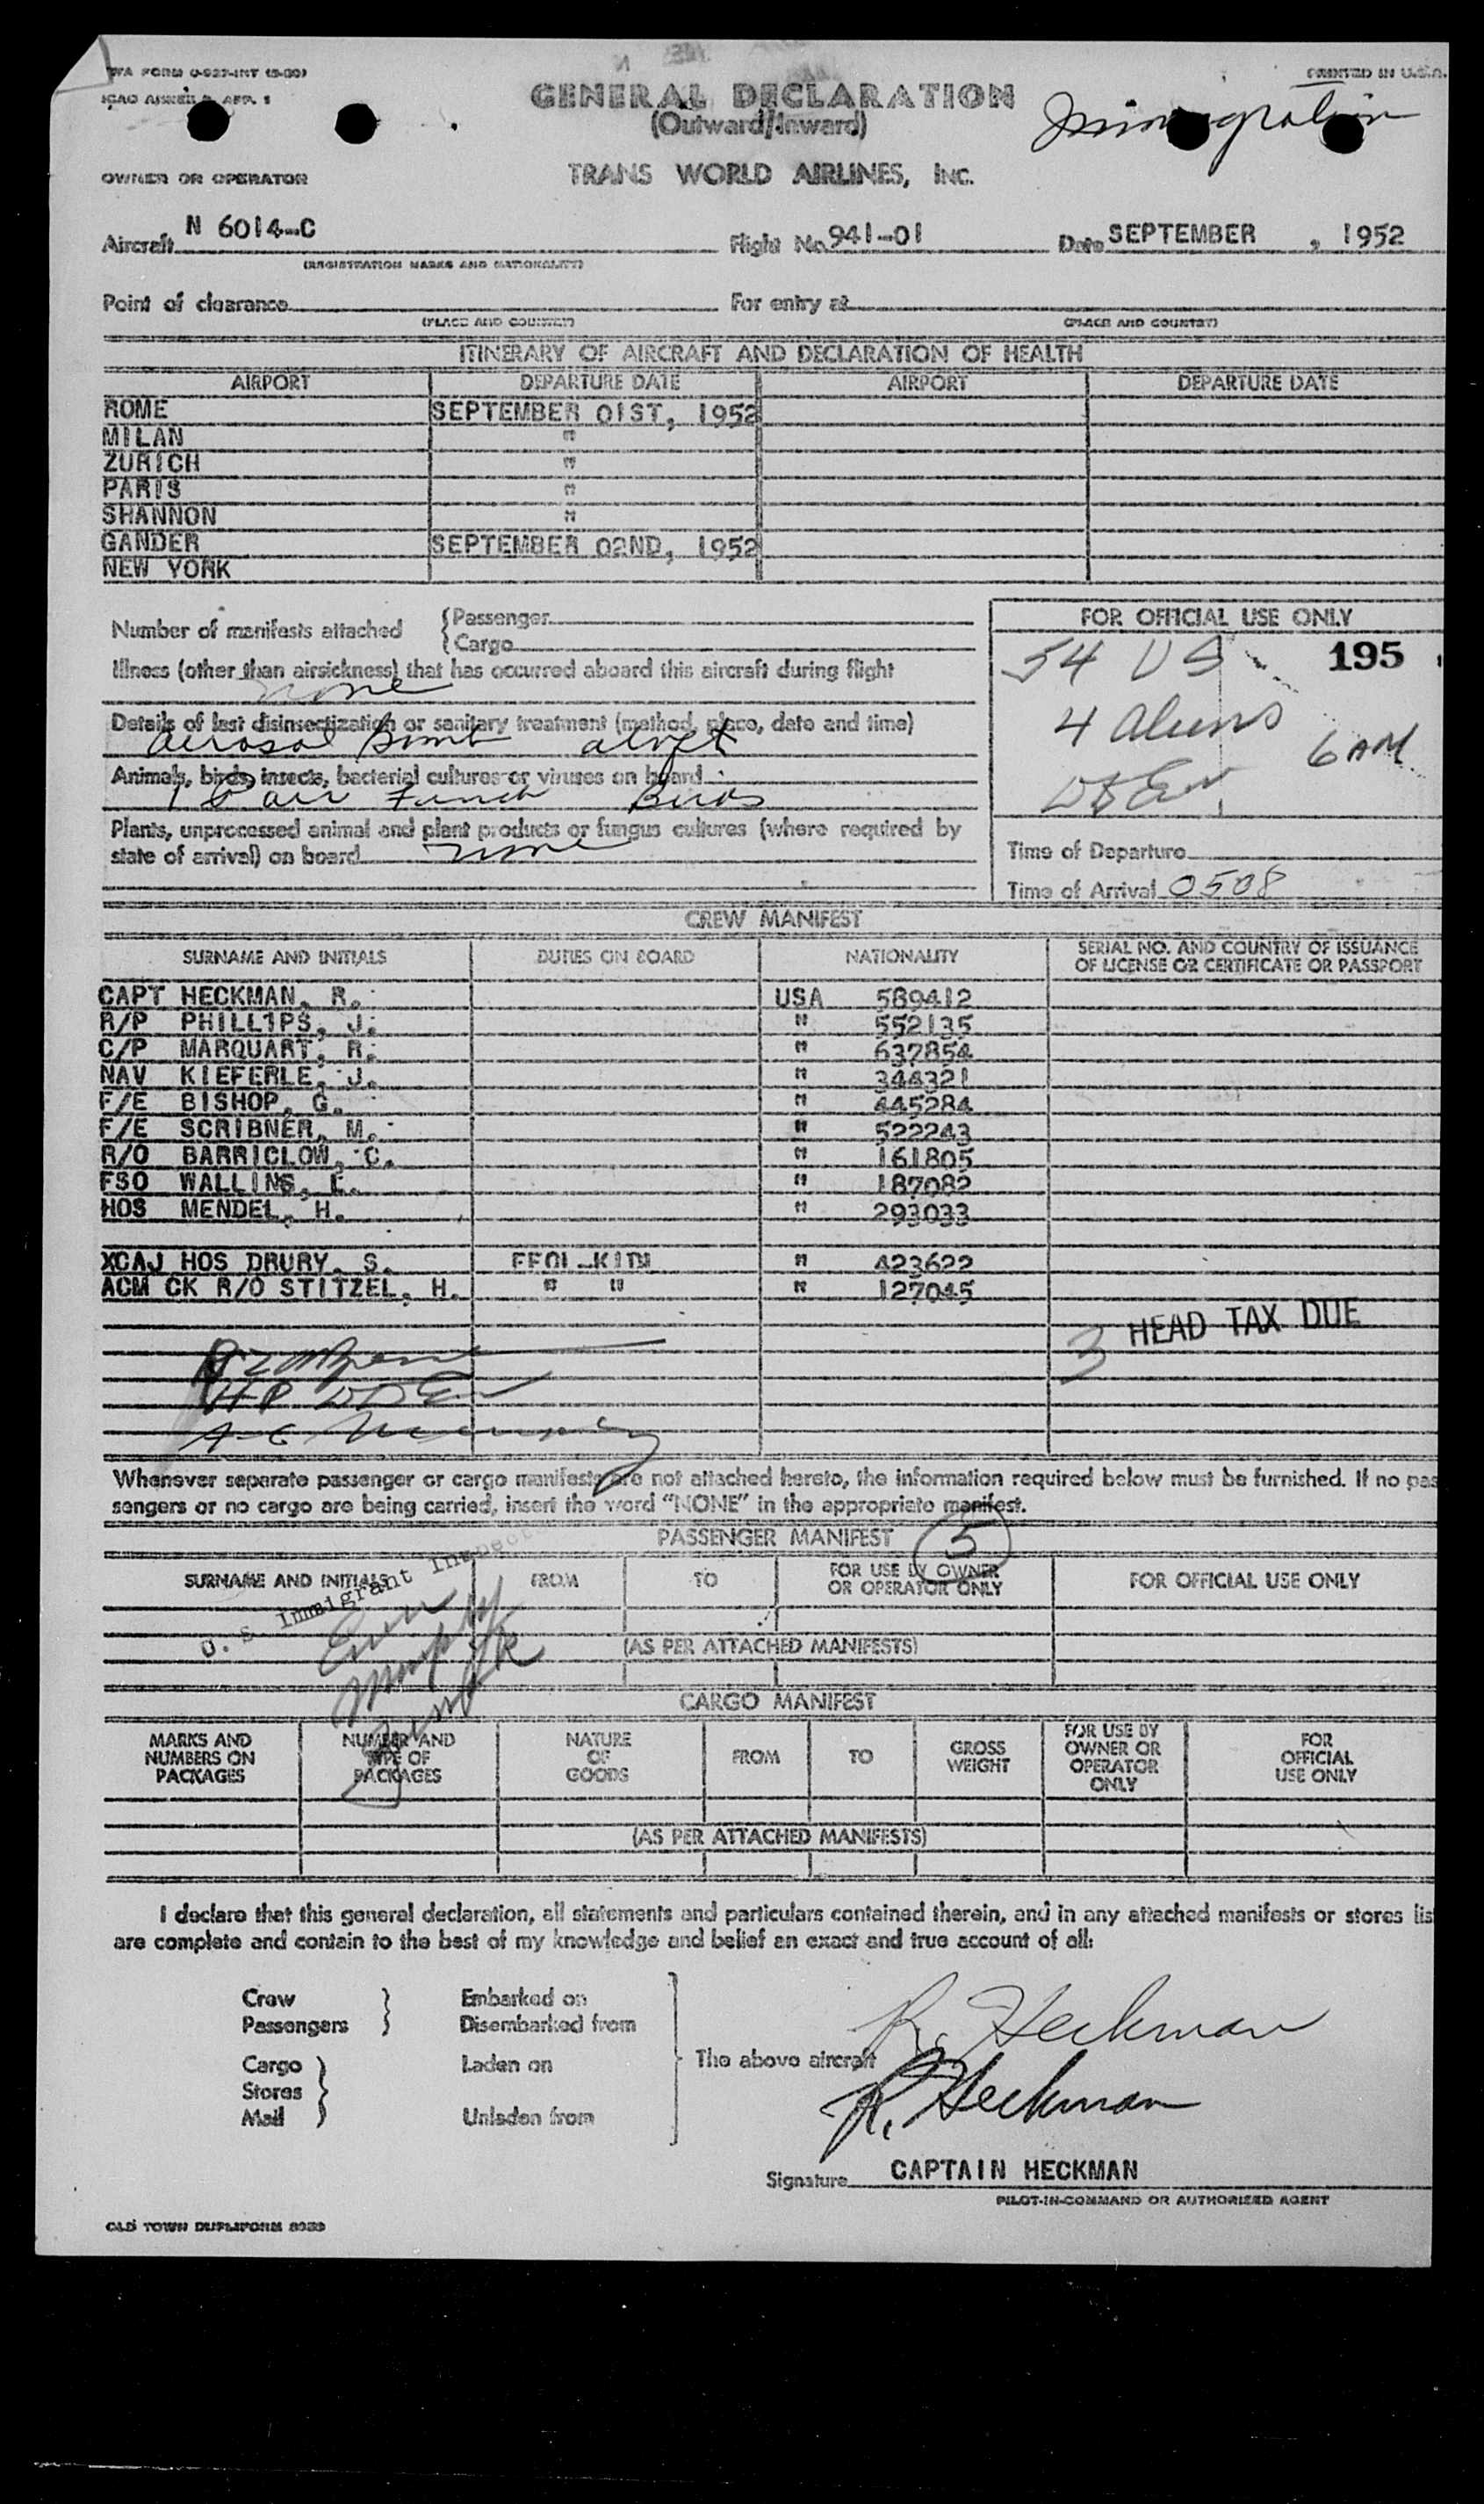 TWA FORM O-927-INT (5-50)
PRINTED IN U.S.A.
ICAO ANNEX 9, APP. 1
GENERAL DECLARATION
(Outward/Inward)
Immigration
OWNER OR OPERATOR
TRANS WORLD AIRLINES, INC.
Aircraft N 6014-C Flight No. 941-01 Date SEPTEMBER , 1952
(REGISTRATION MARKS AND NATIONALITY)
Point of clearance For entry at
(PLACE AND COUNTRY) (PLACE AND COUNTRY)
ITINERARY OF AIRCRAFT AND DECLARATION OF HEALTH
AIRPORT DEPARTURE DATE AIRPORT DEPARTURE DATE
ROME SEPTEMBER 01ST, 1952
MILAN "
ZURICH "
PARIS "
SHANNON "
GANDER SEPTEMBER 02ND, 1952
NEW YORK
Number of manifests attached { Passenger
{ Cargo
Illness (other than airsickness) that has occurred aboard this aircraft during flight
none
Details of last disinsectization or sanitary treatment (method, place, date and time)
aerosol bomb aloft
Animals, birds, insects, bacterial cultures or viruses on board
1 Pair Finch Birds
Plants, unprocessed animal and plant products or fungus cultures (where required by
state of arrival) on board none
FOR OFFICIAL USE ONLY
54 US 195
4 aliens
6 AM
Time of Departure
Time of Arrival 0508
CREW MANIFEST
SURNAME AND INITIALS DUTIES ON BOARD NATIONALITY SERIAL NO. AND COUNTRY OF ISSUANCE
OF LICENSE OR CERTIFICATE OR PASSPORT
CAPT HECKMAN, R. USA 589412
R/P PHILLIPS, J. " 552135
C/P MARQUART, R. " 637854
NAV KIEFERLE, J. " 344321
F/E BISHOP, G. " 445284
F/E SCRIBNER, M. " 522243
R/O BARRICLOW, C. " 161805
FSO WALLING, E. " 187082
HOS MENDEL, H. " 293033
XCAJ HOS DRURY, S. " 423622
ACM CK R/O STITZEL, H. " " " 127045
3 HEAD TAX DUE
Whenever separate passenger or cargo manifests are not attached hereto, the information required below must be furnished. If no pas
sengers or no cargo are being carried, insert the word "NONE" in the appropriate manifest.
PASSENGER MANIFEST 5
SURNAME AND INITIALS FROM TO FOR USE BY OWNER
OR OPERATOR ONLY FOR OFFICIAL USE ONLY
U. S. Immigrant Inspec
Murphy
(AS PER ATTACHED MANIFESTS)
CARGO MANIFEST
MARKS AND NUMBERS ON PACKAGES NUMBER AND TYPE OF PACKAGES NATURE OF GOODS FROM TO GROSS WEIGHT FOR USE BY OWNER OR OPERATOR ONLY FOR OFFICIAL USE ONLY
(AS PER ATTACHED MANIFESTS)
I declare that this general declaration, all statements and particulars contained therein, and in any attached manifests or stores lis
are complete and contain to the best of my knowledge and belief an exact and true account of all:
Crew Embarked on
Passengers } Disembarked from
Cargo Laden on
Stores }
Mail Unladen from
The above aircraft
R. Heckman
R. Heckman
Signature CAPTAIN HECKMAN
PILOT-IN-COMMAND OR AUTHORIZED AGENT
OLD TOWN DUPLIFORM